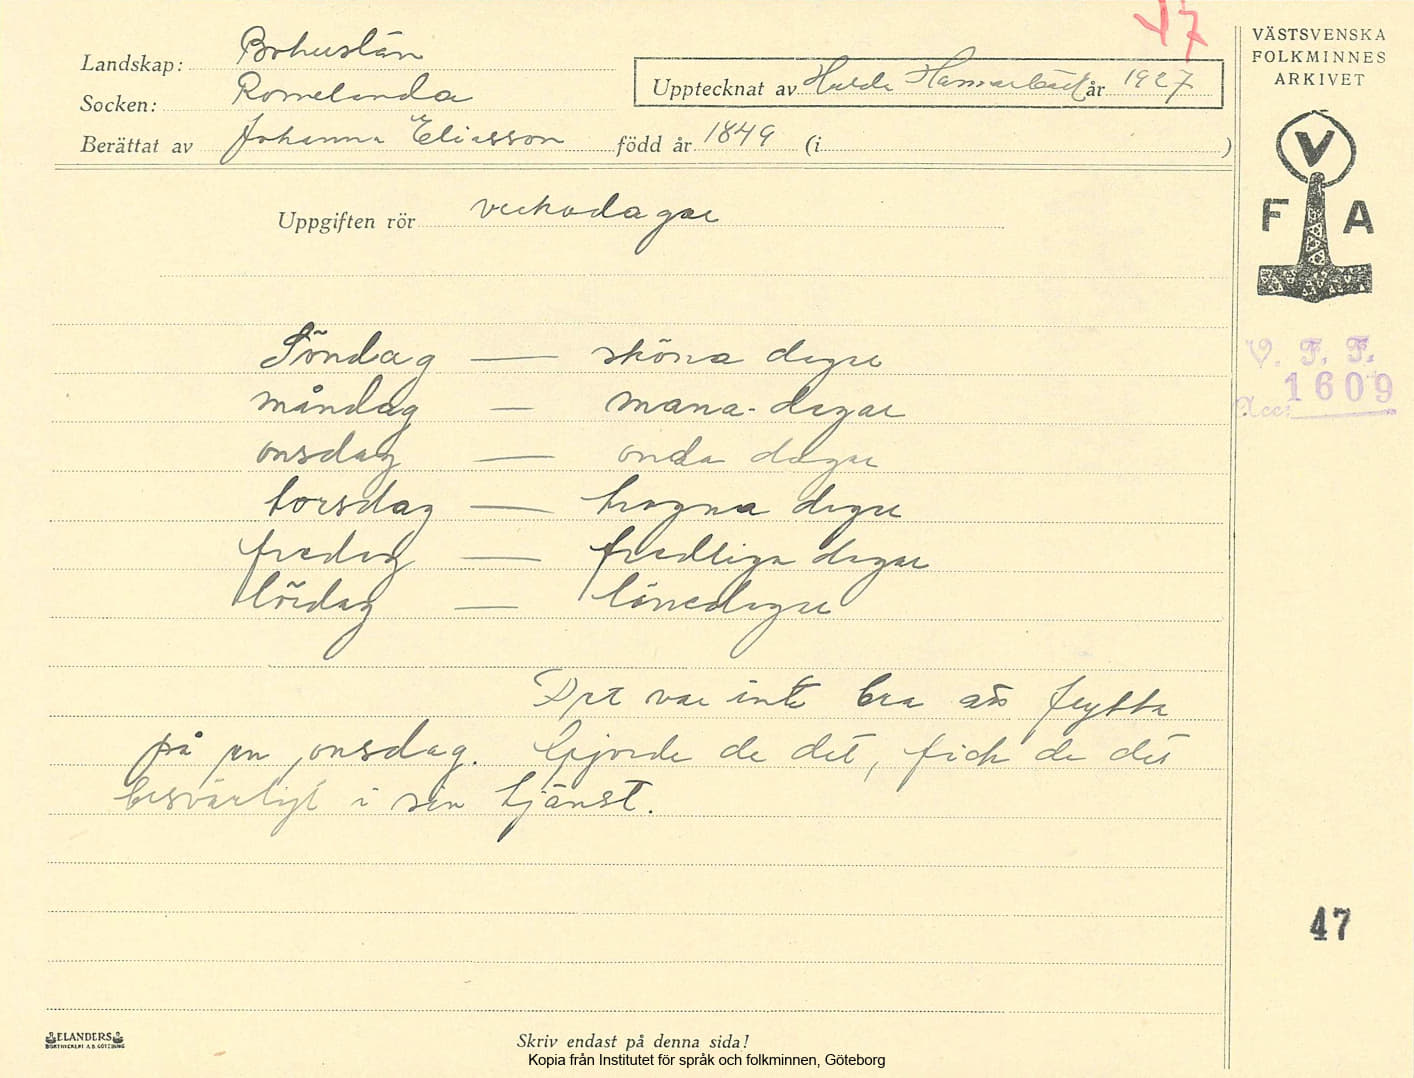 47
VÄSTSVENSKA
FOLKMINNES
ARKIVET
Landskap: Bohuslän
Socken: Romelanda
Upptecknat av Hulda Hammarbäck år 1927
Berättat av Johanna Eliasson född år 1849 (i )
V
F A
Uppgiften rör veckodagar
Söndag — sköna dagar
måndag — mana-dagar
onsdag — onda dagar
torsdag — trogna dagar
fredag — fredliga dagar
lördag — lånedagar
V. F. F.
Acc: 1609
Det var inte bra att flytta
på en onsdag. Gjorde de det, fick de det
besvärligt i sin tjänst.
47
ELANDERS
BOKTRYCKERI A.B. GÖTEBORG
Skriv endast på denna sida!
Kopia från Institutet för språk och folkminnen, Göteborg